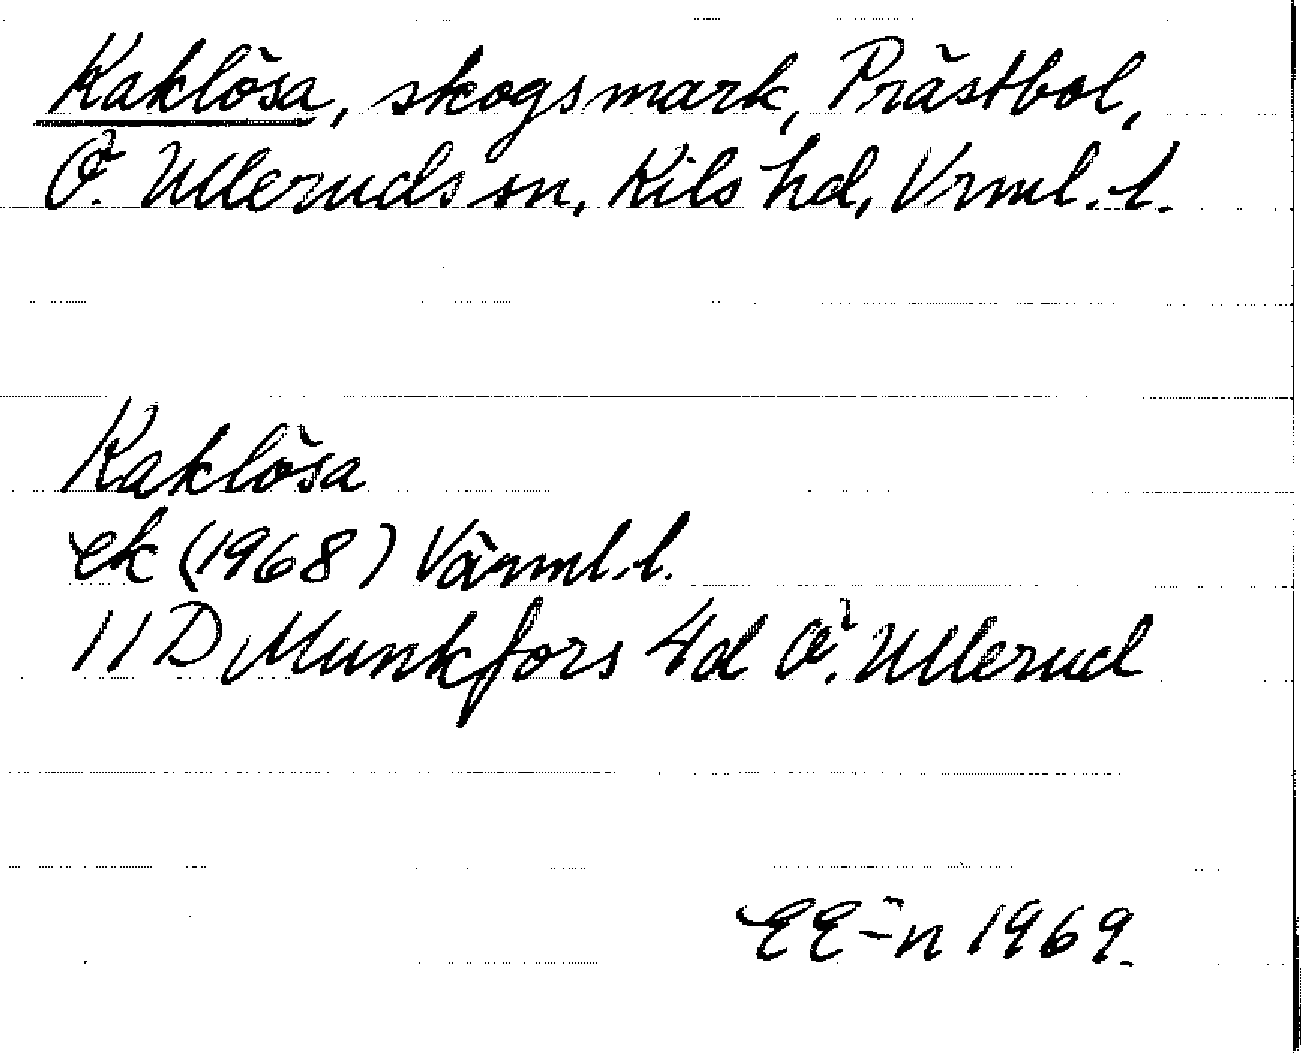 Kaklösa, skogsmark, Prästbol,
Ö. Ulleruds sn, Kils hd, Vrml. l.
Kaklösa
ek (1968) Värml. l.
11 D Munkfors 4d Ö. Ullerud
EE-n 1969.